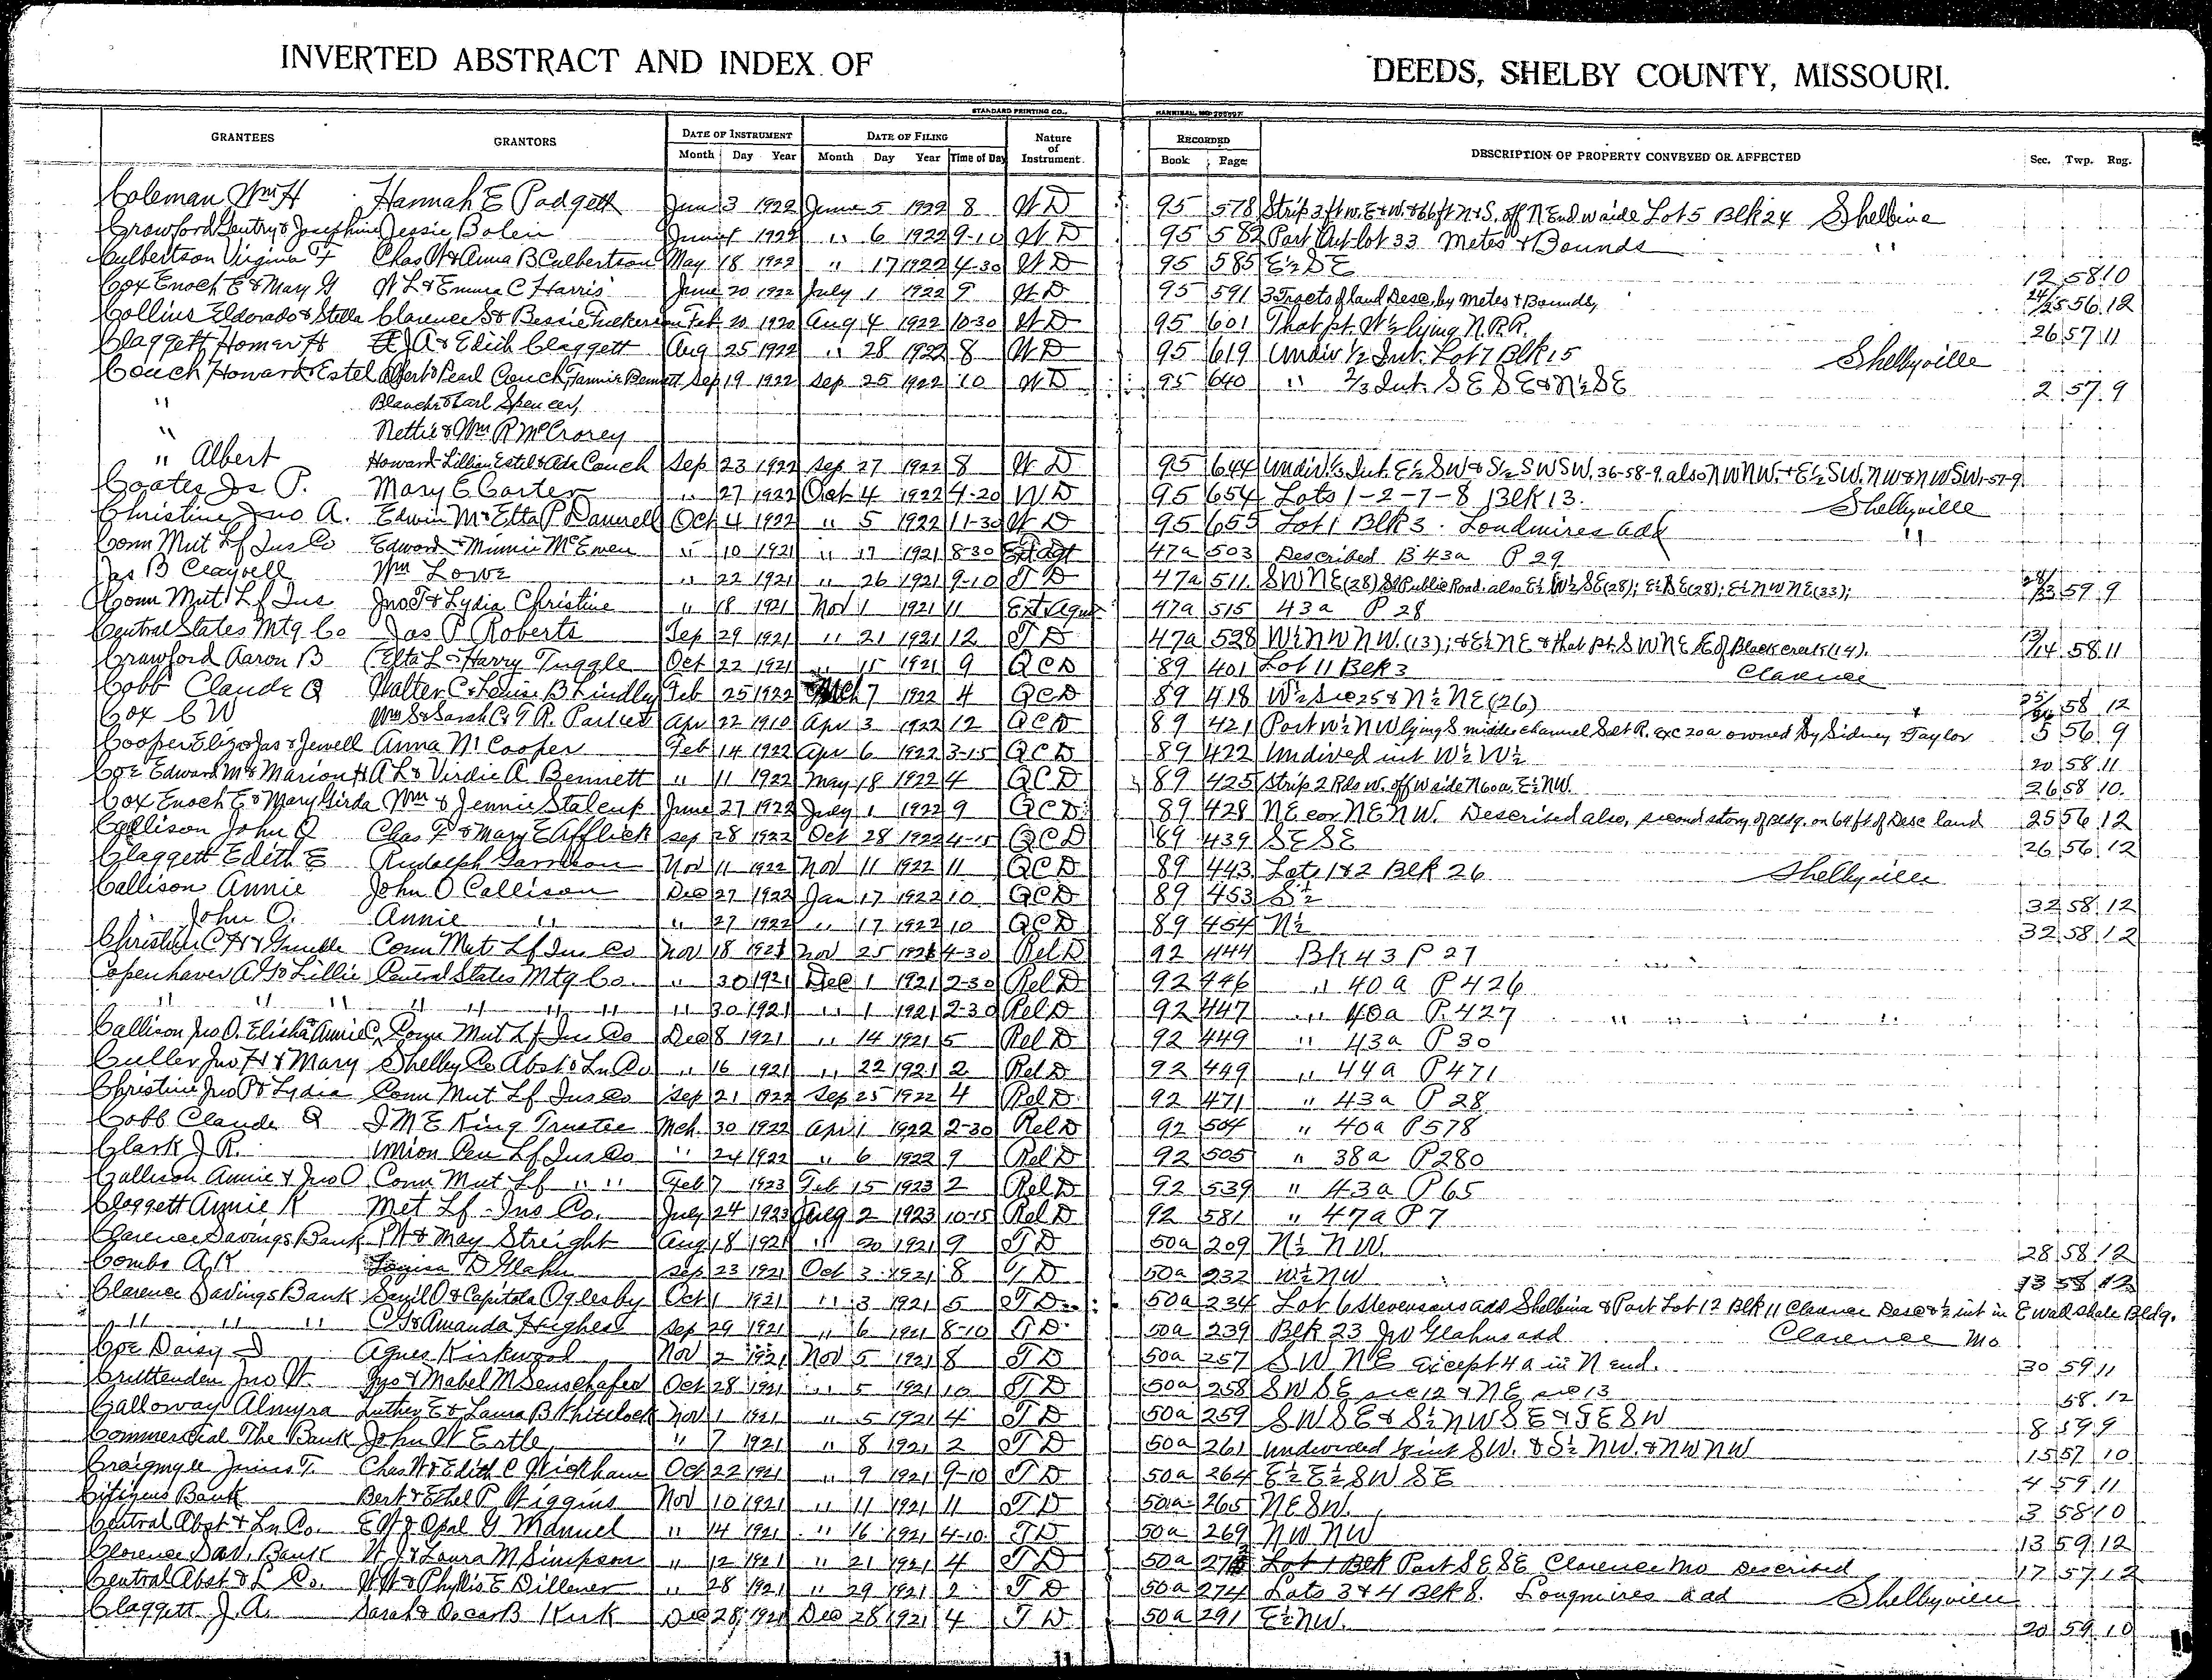 INVERTED ABSTRACT AND INDEX OF DEEDS, SHELBY COUNTY, MISSOURI.
STANDARD PRINTING CO., HANNIBAL, MO
GRANTEES GRANTORS DATE OF INSTRUMENT DATE OF FILING Nature of Instrument RECORDED DESCRIPTION OF PROPERTY CONVEYED OR AFFECTED Sec. Twp. Rng.
Month Day Year Month Day Year Time of Day Book Page
Coleman Wm H Hannah E Padgett June 3 1922 June 5 1922 8 W D 95 578 Strip 3 ft w. E & W. & 66 ft N & S. off N End W side Lot 5 Blk 24 Shelbina
Crawford Gentry & Josephine Jessie Bolen June 1922 " 6 1922 9-10 W D 95 582 Part Out-lot 33 Metes & Bounds "
Culbertson Virginia F Chas W & Anna B Culbertson May 18 1922 " 17 1922 4-30 W D 95 585 E½ SE 12 58 10
Cox Enoch E & Mary G W L & Emma C Harris June 20 1922 July 1 1922 9 W D 95 591 3 Tracts of land Desc. by Metes & Bounds, 24/25 56 12
Collins Eldorado & Stella Clarence S & Bessie Feb 20 1920 Aug 4 1922 10-30 W D 95 601 That pt. W½ lying N.R.R. 26 57 11
Claggett Homer H J A & Edith Claggett Aug 25 1922 " 28 1922 8 W D 95 619 Undiv ½ Int. Lot 7 Blk 15 Shelbyville
Couch Howard & Estel Albert & Pearl Couch, Fannie Bennett Sep 19 1922 Sep 25 1922 10 W D 95 640 " 2/3 Int. S E S E & N½ S E 2 57 9
" Blanche & Earl Spencer,
" Nettie & Wm R McCrorey
" Albert Howard-Lillian Estel & Ada Couch Sep 23 1922 Sep 27 1922 8 W D 95 644 Undiv. ⅓ Int. E½ SW & S½ SWSW, 36-58-9. also NWNW. & E½ SW. NW & NWSW,-57-9
Coates Js P. Mary E Carter " 27 1922 Oct 4 1922 4-20 W D 95 654 Lots 1-2-7-8 Blk 13. Shelbyville
Christine Jno A. Edwin M & Etta P Damrell Oct 4 1922 " 5 1922 11-30 W D 95 655 Lot 1 Blk 3. Loudmires add "
Conn Mut Lf Ins Co Edward & Minnie McEwen " 10 1921 " 17 1921 8-30 Ext Agt 47a 503 Described B 43a P 29
Jas B Clayvell Wm Lowe " 22 1921 " 26 1921 9-10 T D 47a 511 SWNE (28) S of Public Road. also E½ W½ SE (28); E½ SE (28); E½ NWNE (33); 28/33 59 9
Conn Mut Lf Ins Jno T & Lydia Christine " 18 1921 Nov 1 1921 11 Ext Agmt 47a 515 43a P 28
Central States Mtg Co Jas P Roberts Sep 29 1921 " 21 1921 12 T D 47a 528 W½ NW NW. (13); & E½ NE & that pt. SWNE E of Black creek (14). 13/14 58 11
Crawford Aaron B Etta L & Harry Tuggle Oct 22 1921 " 15 1921 9 Q C D 89 401 Lot 11 Blk 3 Clarence
Cobb Claude Q Walter C & Louise B Lindley Feb 25 1922 Mch 7 1922 4 Q C D 89 418 W½ Sec 25 & N½ NE (26) 25/26 58 12
Cox C W Wm S & Sarah C & T R. Parker Apr 22 1910 Apr 3 1922 12 Q C D 89 421 Part W½ NW lying S middle channel Salt R. exc 20a owned by Sidney Taylor 5 56 9
Cooper Eliza Jas & Jewell Anna N Cooper Feb 14 1922 Apr 6 1922 3-15 Q C D 89 422 Undived int W½ W½ 20 58 11
Coe Edward M & Marion H A L & Virdie A. Bennett " 11 1922 May 18 1922 4 Q C D 89 425 Strip 2 Rds W. off W side N 60a. E½ NW. 26 58 10
Cox Enoch E & Mary Girda Wm & Jennie Stalcup June 27 1922 July 1 1922 9 Q C D 89 428 NE cor NENW. Described also, second story of Bldg. on 64 ft of Desc land 25 56 12
Callison John O Chas F & Mary E Afflick Sep 28 1922 Oct 28 1922 4-15 Q C D 89 439 SESE 26 56 12
Claggett Edith E Rudolph Garrison Nov 11 1922 Nov 11 1922 11 Q C D 89 443 Lots 1 & 2 Blk 26 Shelbyville
Callison Annie John O Callison Dec 27 1922 Jan 17 1922 10 Q C D 89 453 S½ 32 58 12
" John O. Annie " " 27 1922 " 17 1922 10 Q C D 89 454 N½ 32 58 12
Christine C H & Conn Mut Lf Ins Co Nov 18 1921 Nov 25 1921 4-30 Rel D 92 444 Bk 43 P 27
Copenhaver A G & Lillie Central States Mtg Co. " 30 1921 Dec 1 1921 2-30 Rel D 92 446 " 40a P 426
" " " " " " " " 30 1921 " 1 1921 2-30 Rel D 92 447 " 40a P. 427
Callison Jno O. Elisha Annie C, Conn Mut Lf Ins Co Dec 8 1921 " 14 1921 5 Rel D 92 449 " 43a P 30
Culler Jno H & Mary Shelby Co Abst & Ln Co " 16 1921 " 22 1921 2 Rel D 92 449 " 44a P 471
Christine Jno P & Lydia Conn Mut Lf Ins Co Sep 21 1922 Sep 25 1922 4 Rel D 92 471 " 43a P 28
Cobb Claude Q J M E King Trustee Mch 30 1922 Apr 1 1922 2-30 Rel D 92 504 " 40a P 578
Clark J R. Union Cen Lf Ins Co " 24 1922 " 6 1922 9 Rel D 92 505 " 38a P 280
Callison Annie & Jno O Conn Mut Lf " " Feb 7 1923 Feb 15 1923 2 Rel D 92 539 " 43a P 65
Claggett Annie K Met Lf Ins Co. July 24 1923 Aug 2 1923 10-15 Rel D 92 581 " 47a P 7
Clarence Savings Bank P H & May Streight Aug 18 1921 " 20 1921 9 T D 50a 209 N½ NW. 28 58 12
Combs A K Louisa D Glahn Sep 23 1921 Oct 3 1921 8 T D 50a 232 W½ NW 13 58 12
Clarence Savings Bank O & Capitola Oglesby Oct 1 1921 " 3 1921 5 T D 50a 234 Lot 6 Stevensons add Shelbina & Part Lot 12 Blk 11 Clarence Desc & ½ int in E wall State Bldg.
" " " C G & Amanda Highes Sep 29 1921 " 6 1921 8-10 T D 50a 239 Blk 23 Jno Glahns add Clarence Mo
Coe Daisy D Agnes Kirkwood Nov 2 1921 Nov 5 1921 8 T D 50a 257 SW NE Except 4a in N end. 30 59 11
Crittenden Jno W. Jno & Mabel M Senschafer Oct 28 1921 " 5 1921 10 T D 50a 258 SWSE sec 12 & NE sec 13 58 12
Galloway Almyra Luther E & Laura B Whitelock Nov 1 1921 " 5 1921 4 T D 50a 259 SWSE & S½ NWSE & SESW 8 59 9
Commercial The Bank John W Ertle " 7 1921 " 8 1921 2 T D 50a 261 Undivided ½ int SW. & S½ NW. & NWNW 15 57 10
Craigmyle Junius T. Chas W & Edith C Wickham Oct 22 1921 " 9 1921 9-10 T D 50a 264 E½ E½ SW SE 4 59 11
Citizens Bank Bert & Ethel P Wiggins Nov 10 1921 " 11 1921 11 T D 50a 265 NESW. 3 58 10
Central Abst & Ln Co. E W & Opal G Manuel " 14 1921 " 16 1921 4-10 T D 50a 269 NW NW 13 59 12
Clarence Sav. Bank W J & Laura M Simpson " 12 1921 " 21 1921 4 T D 50a Lot 1 Blk Part SESE Clarence Mo Described 17 57 12
Central Abst & L Co. W W & Phyllis E Dillener " 28 1921 " 29 1921 2 T D 50a 274 Lots 3 & 4 Blk 8. Longmires add Shelbyville
Claggett J. A. Sarah & Oscar B Kirk Dec 28 1921 Dec 28 1921 4 T D 50a 291 E½ NW. 20 59 10